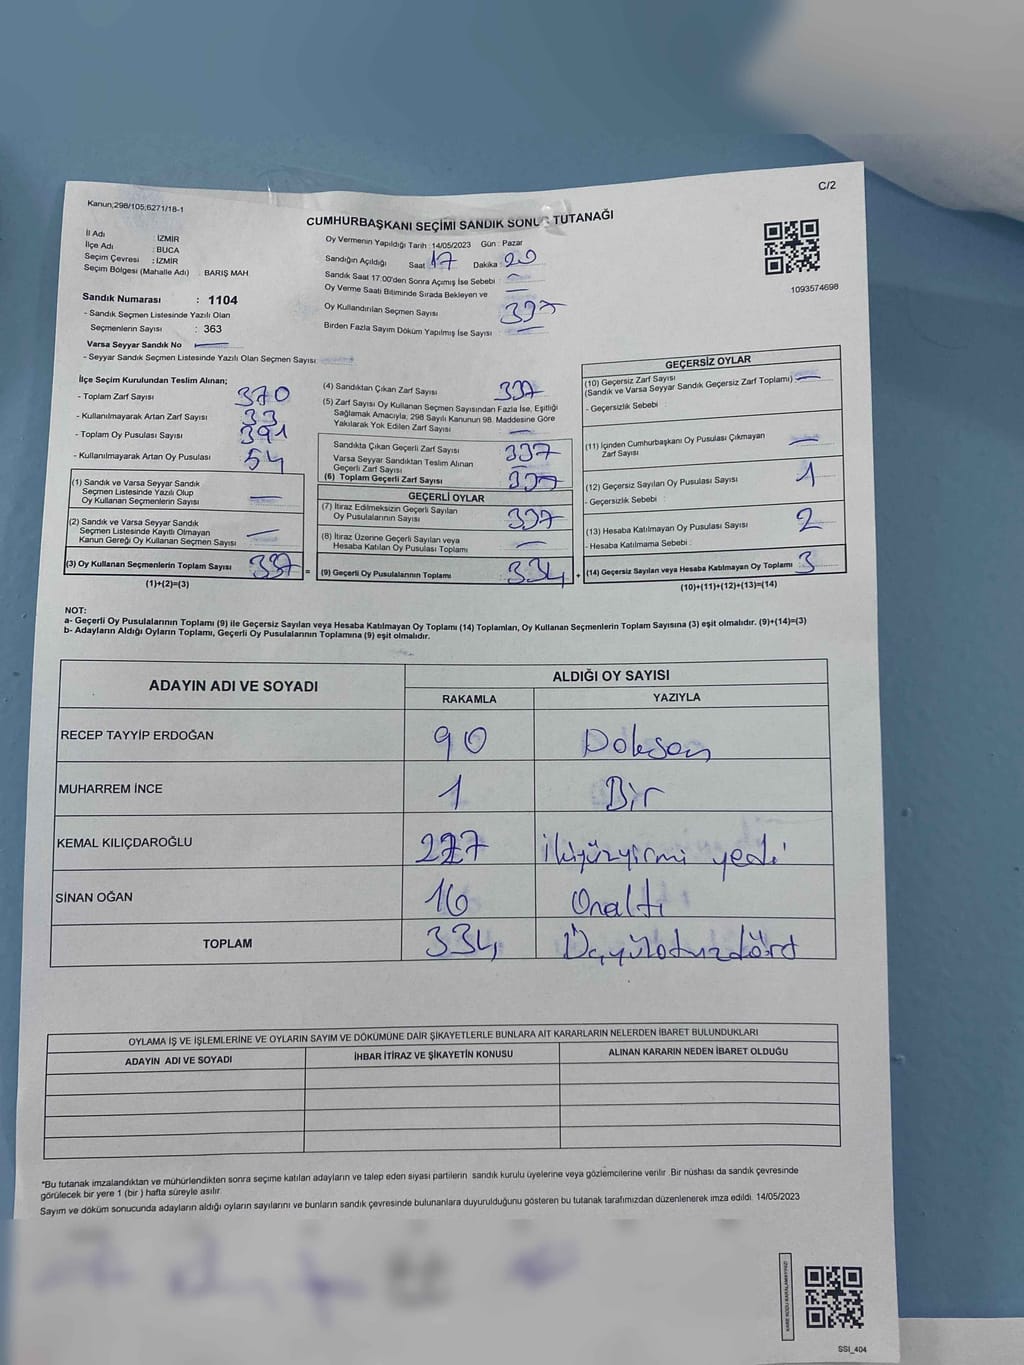 C/2
Kanun,298/105;6271/18-1
CUMHURBAŞKANI SEÇİMİ SANDIK SONUÇ TUTANAĞI
İl Adı : İZMİR
İlçe Adı : BUCA
Seçim Çevresi : İZMİR
Seçim Bölgesi (Mahalle Adı) : BARIŞ MAH.
Sandık Numarası : 1104
- Sandık Seçmen Listesinde Yazılı Olan
Seçmenlerin Sayısı : 363
Varsa Seyyar Sandık No
- Seyyar Sandık Seçmen Listesinde Yazılı Olan Seçmen Sayısı:
Oy Vermenin Yapıldığı Tarih :14/05/2023 Gün : Pazar
Sandığın Açıldığı Saat 17 Dakika : 20
Sandık Saat 17.00'den Sonra Açımış İse Sebebi :
Oy Verme Saati Bitiminde Sırada Bekleyen ve
Oy Kullandırılan Seçmen Sayısı 337
Birden Fazla Sayım Döküm Yapılmış İse Sayısı :
1093574698
İlçe Seçim Kurulundan Teslim Alınan;
- Toplam Zarf Sayısı 370
- Kullanılmayarak Artan Zarf Sayısı 33
- Toplam Oy Pusulası Sayısı 391
- Kullanılmayarak Artan Oy Pusulası 54
(1) Sandık ve Varsa Seyyar Sandık
Seçmen Listesinde Yazılı Olup
Oy Kullanan Seçmenlerin Sayısı
(2) Sandık ve Varsa Seyyar Sandık
Seçmen Listesinde Kayıtlı Olmayan
Kanun Gereği Oy Kullanan Seçmen Sayısı
(3) Oy Kullanan Seçmenlerin Toplam Sayısı 337 =
(1)+(2)=(3)
(4) Sandıktan Çıkan Zarf Sayısı 337
(5) Zarf Sayısı Oy Kullanan Seçmen Sayısından Fazla İse, Eşitliği
Sağlamak Amacıyla, 298 Sayılı Kanunun 98. Maddesine Göre
Yakılarak Yok Edilen Zarf Sayısı
Sandıkta Çıkan Geçerli Zarf Sayısı 337
Varsa Seyyar Sandıktan Teslim Alınan
Geçerli Zarf Sayısı
(6) Toplam Geçerli Zarf Sayısı 337
GEÇERLİ OYLAR
(7) İtiraz Edilmeksizin Geçerli Sayılan
Oy Pusulalarının Sayısı 337
(8) İtiraz Üzerine Geçerli Sayılan veya
Hesaba Katılan Oy Pusulası Toplamı
(9) Geçerli Oy Pusulalarının Toplamı 334 +
GEÇERSİZ OYLAR
(10) Geçersiz Zarf Sayısı
(Sandık ve Varsa Seyyar Sandık Geçersiz Zarf Toplamı)
- Geçersizlik Sebebi :
(11) İçinden Cumhurbaşkanı Oy Pusulası Çıkmayan
Zarf Sayısı
(12) Geçersiz Sayılan Oy Pusulası Sayısı 1
- Geçersizlik Sebebi :
(13) Hesaba Katılmayan Oy Pusulası Sayısı 2
- Hesaba Katılmama Sebebi :
(14) Geçersiz Sayılan veya Hesaba Katılmayan Oy Toplamı 3
(10)+(11)+(12)+(13)=(14)
NOT:
a- Geçerli Oy Pusulalarının Toplamı (9) ile Geçersiz Sayılan veya Hesaba Katılmayan Oy Toplamı (14) Toplamları, Oy Kullanan Seçmenlerin Toplam Sayısına (3) eşit olmalıdır. (9)+(14)=(3)
b- Adayların Aldığı Oyların Toplamı, Geçerli Oy Pusulalarının Toplamına (9) eşit olmalıdır.
ADAYIN ADI VE SOYADI ALDIĞI OY SAYISI
RAKAMLA YAZIYLA
RECEP TAYYİP ERDOĞAN 90 Doksan
MUHARREM İNCE 1 Bir
KEMAL KILIÇDAROĞLU 227 ikiyüzyirmi yedi
SİNAN OĞAN 16 Onaltı
TOPLAM 334 Üçyüzotuzdört
OYLAMA İŞ VE İŞLEMLERİNE VE OYLARIN SAYIM VE DÖKÜMÜNE DAİR ŞİKAYETLERLE BUNLARA AİT KARARLARIN NELERDEN İBARET BULUNDUKLARI
ADAYIN ADI VE SOYADI İHBAR İTİRAZ VE ŞİKAYETİN KONUSU ALINAN KARARIN NEDEN İBARET OLDUĞU
*Bu tutanak imzalandıktan ve mühürlendikten sonra seçime katılan adayların ve talep eden siyasi partilerin sandık kurulu üyelerine veya gözlemcilerine verilir. Bir nüshası da sandık çevresinde
görülecek bir yere 1 (bir ) hafta süreyle asılır.
Sayım ve döküm sonucunda adayların aldığı oyların sayılarını ve bunların sandık çevresinde bulunanlara duyurulduğunu gösteren bu tutanak tarafımızdan düzenlenerek imza edildi. 14/05/2023
KARE KODU KARALAMAYINIZ!
SSI_404